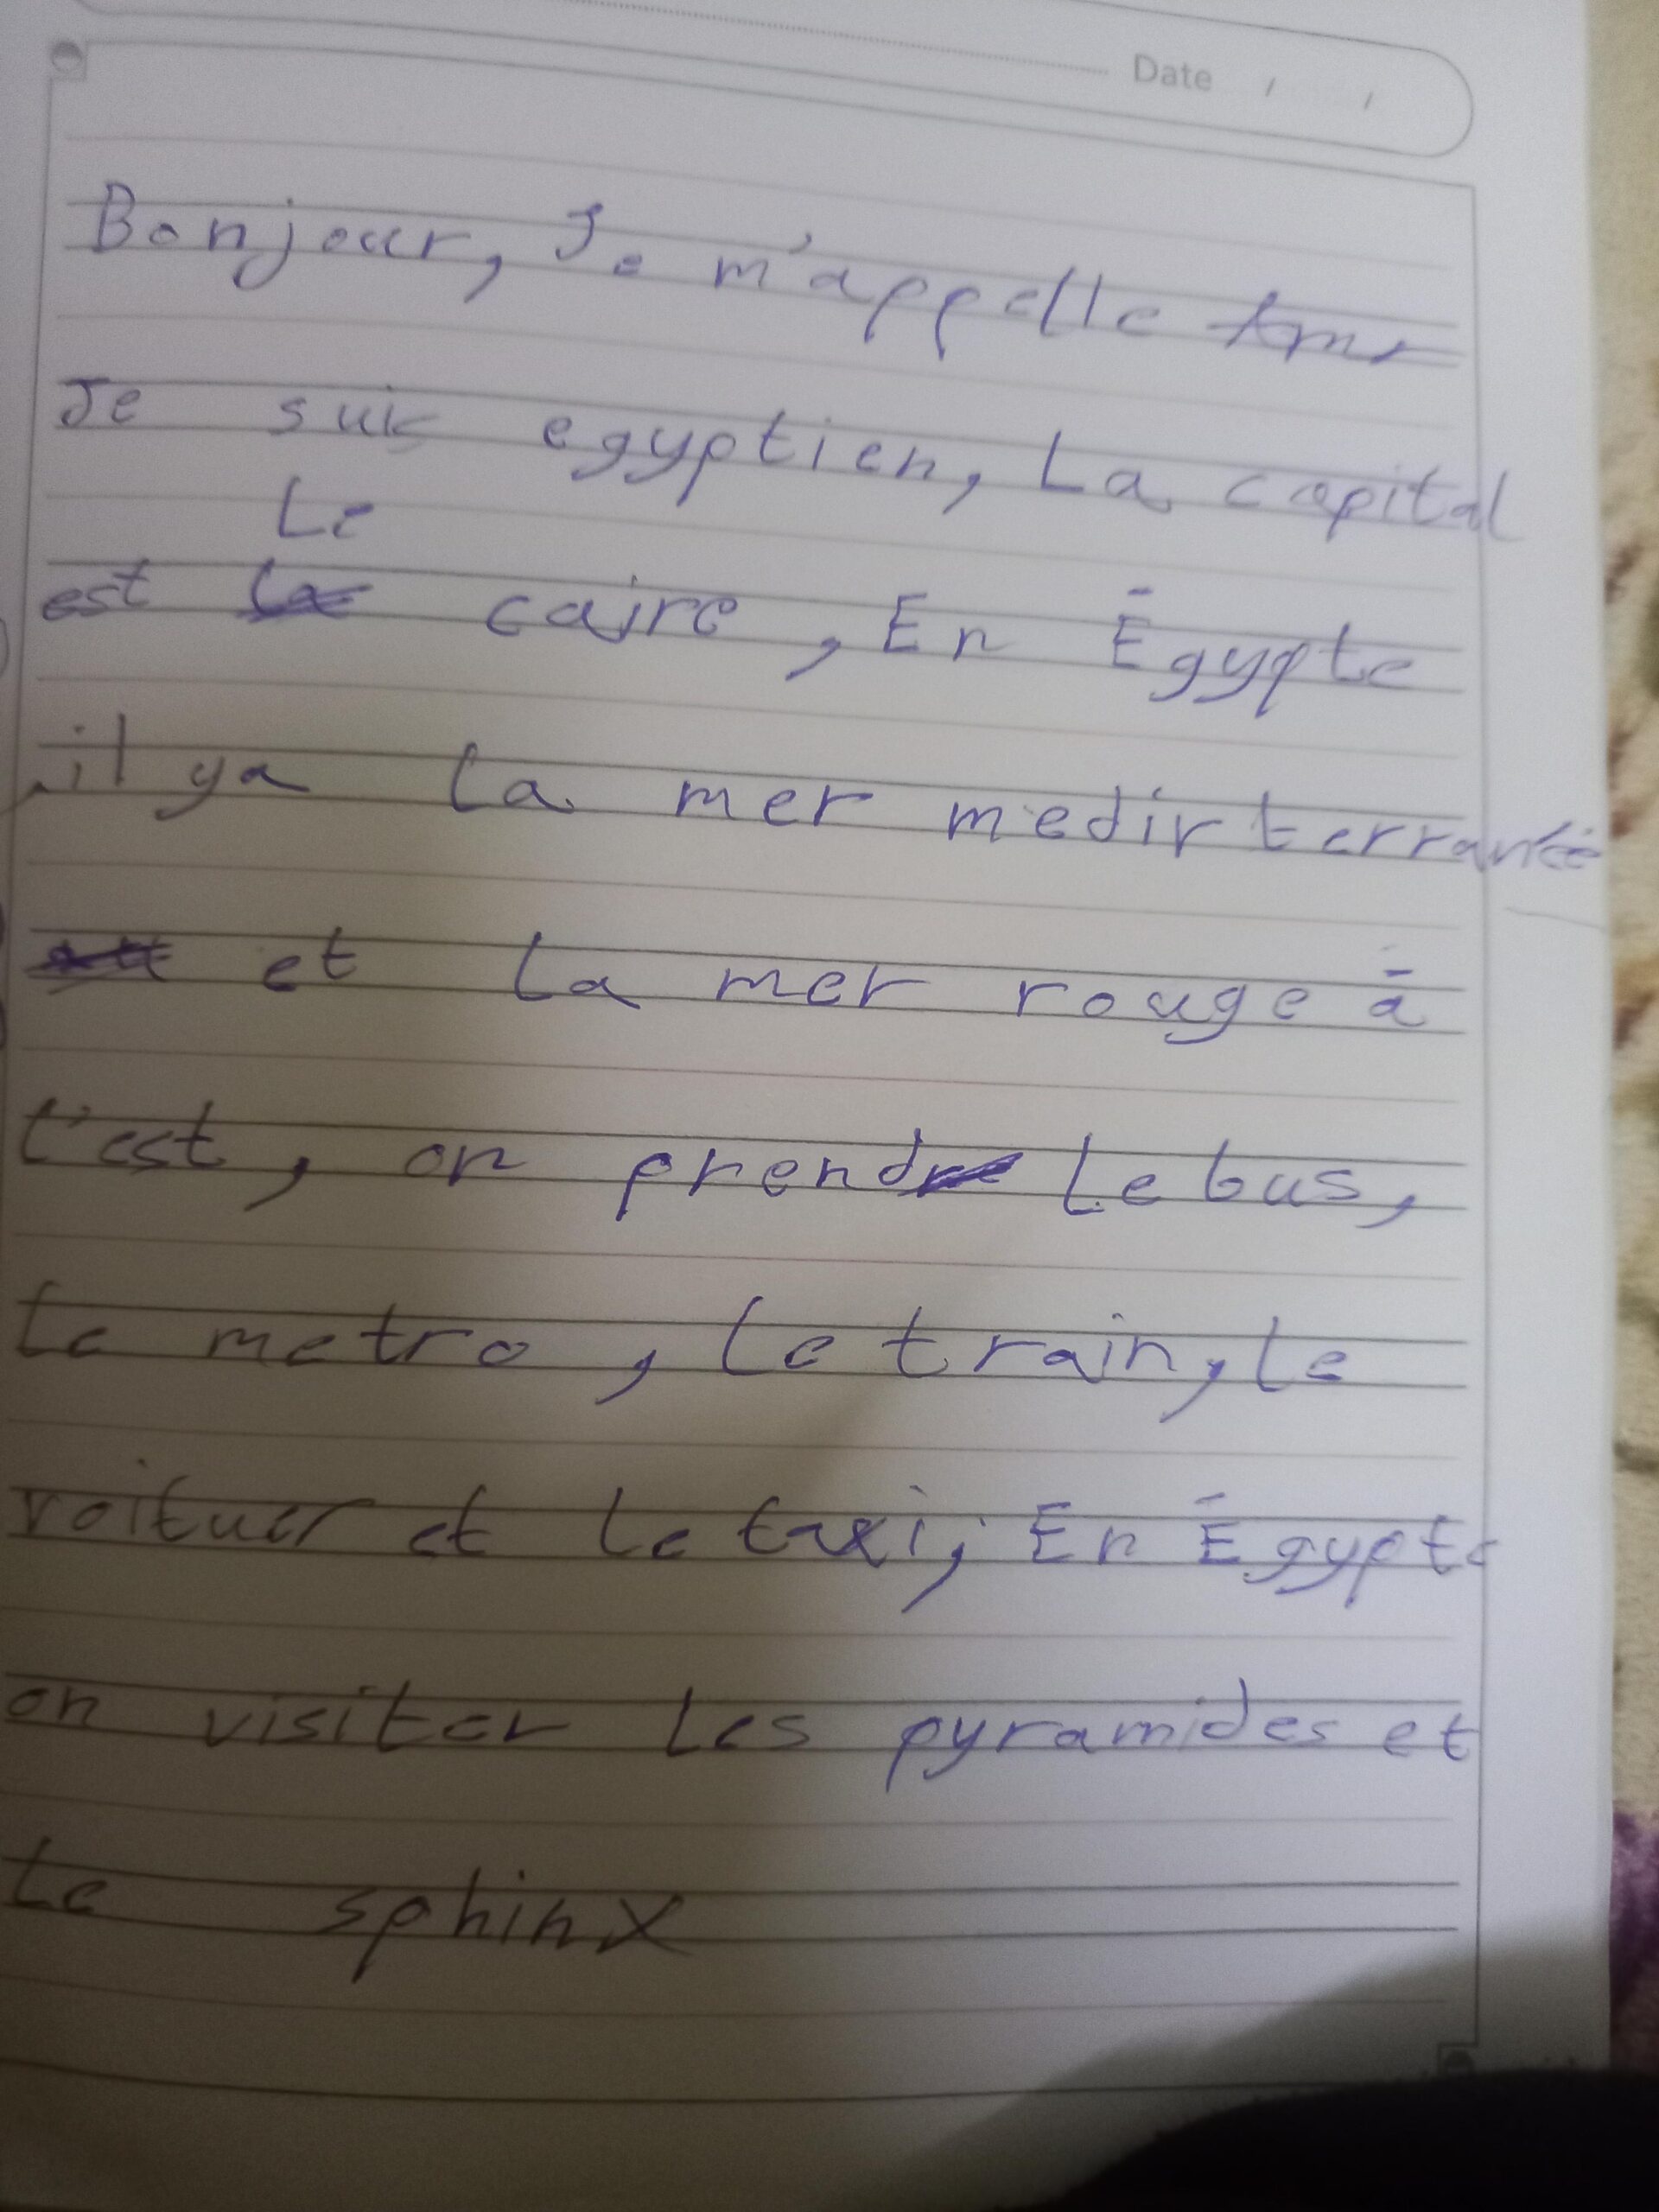 Date / /
Bonjour, Je m'appelle Amr
Je suis egyptien, La capital
Le
est caire, En Égypte
il ya la mer medirterranée
et la mer rouge à
l'est, on prend le bus,
le metro, le train, le
voituer et le taxi, En Égypte
on visiter les pyramides et
le sphinx